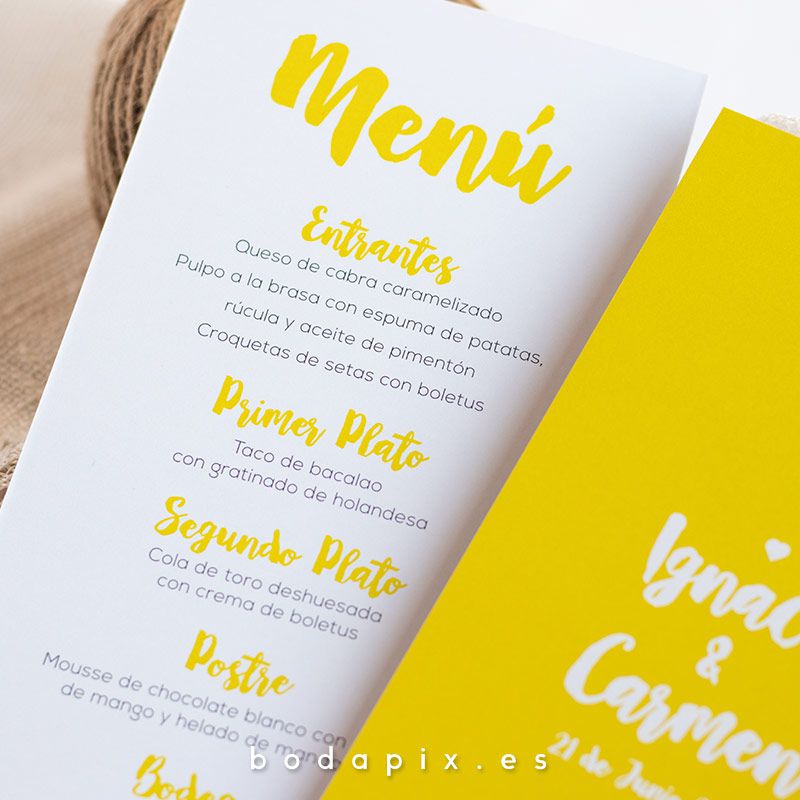 Menú
Entrantes
Queso de cabra caramelizado
Pulpo a la brasa con espuma de patatas,
rúcula y aceite de pimentón
Croquetas de setas con boletus
Primer Plato
Taco de bacalao
con gratinado de holandesa
Segundo Plato
Cola de toro deshuesada
con crema de boletus
Postre
Mousse de chocolate blanco con
de mango y helado de
Ignac
&
Carmen
21 de Junio
bodapix.es